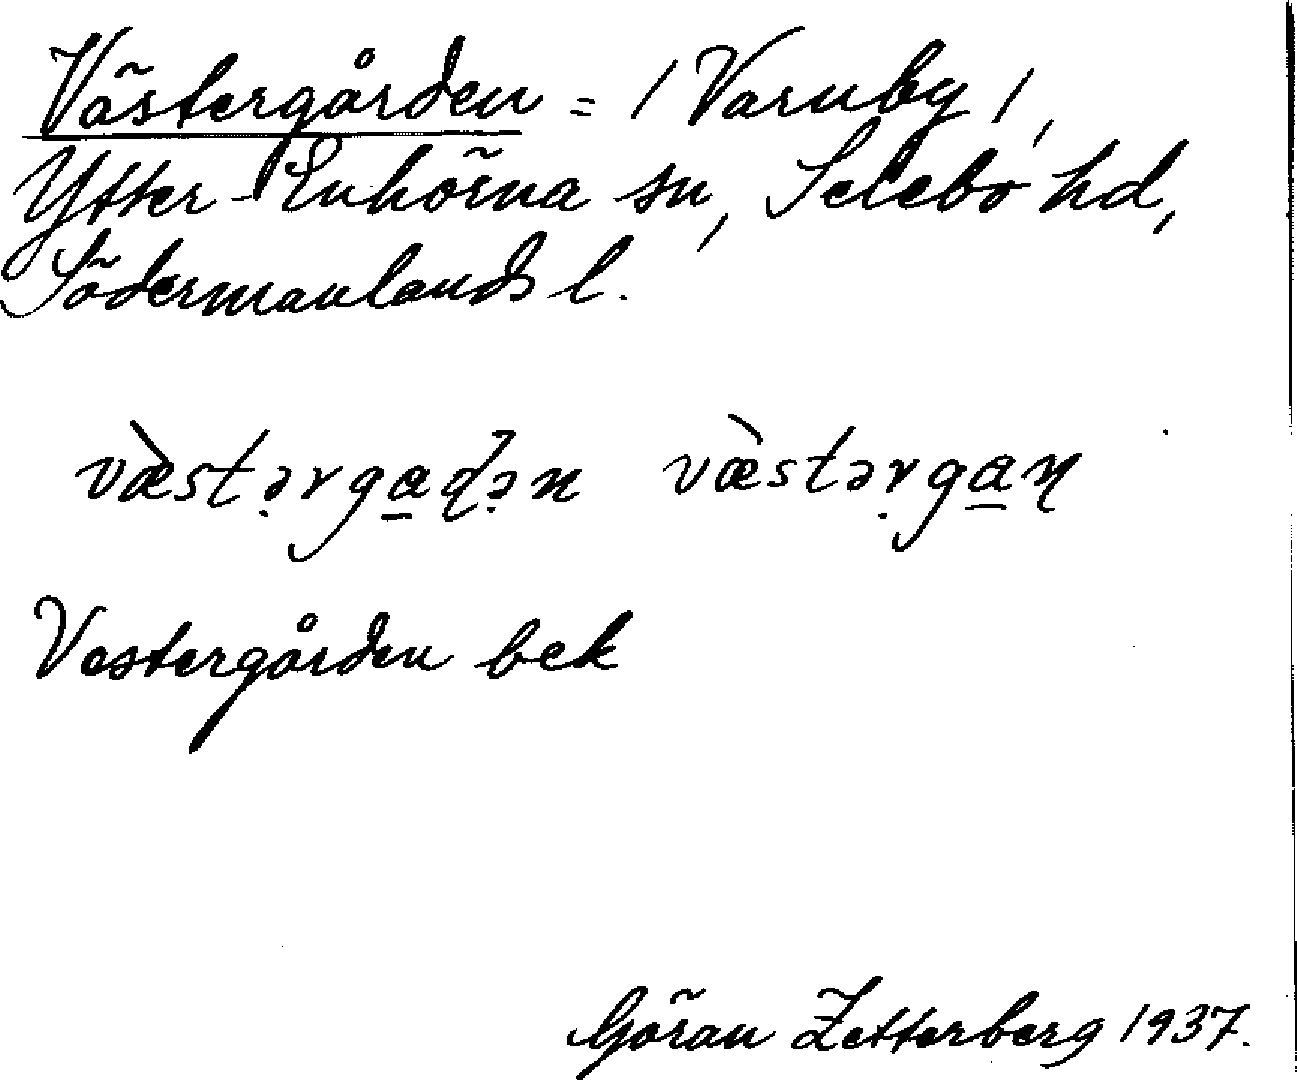 Västergården = / Varuby /,
Ytter-Enhörna sn, Selebo hd,
Södermanlands l.
væ̀stə̣rga̱ɖə̣n væ̀stəṛga̱ɳ
Vestergården bek
Göran Zetterberg 1937.